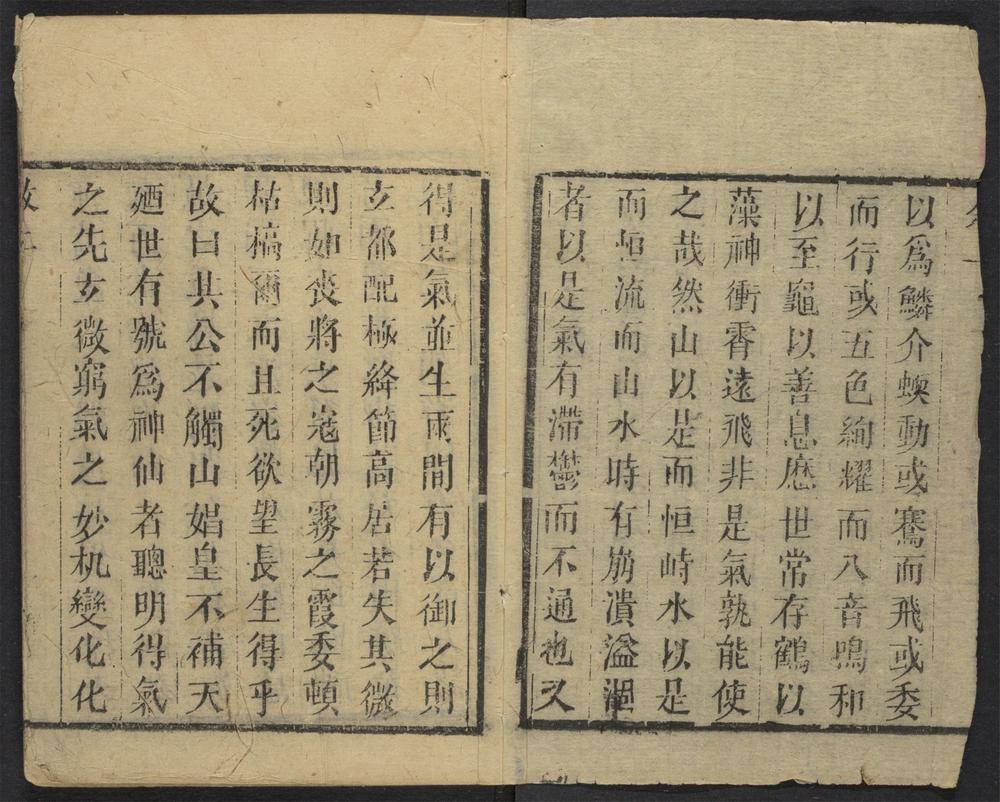 以爲鱗介蝡動或騫而飛或委
而行或五色絢耀而八音鳴和
以至龜以善息歷世常存鶴以
藻神衝霄遠飛非是氣孰能使
之哉然山以是而恒峙水以是
而恒流而山水時有崩潰溢涸
者以是氣有滯鬱而不通也又
得是氣並生兩間有以御之則
玄都配極絳節高居若失其微
則如喪將之寇朝霧之霞委頓
枯槁爾而且死欲望長生得乎
故曰共公不觸山媧皇不補天
廼世有號爲神仙者聰明得氣
之先玄微窮氣之妙机變化化